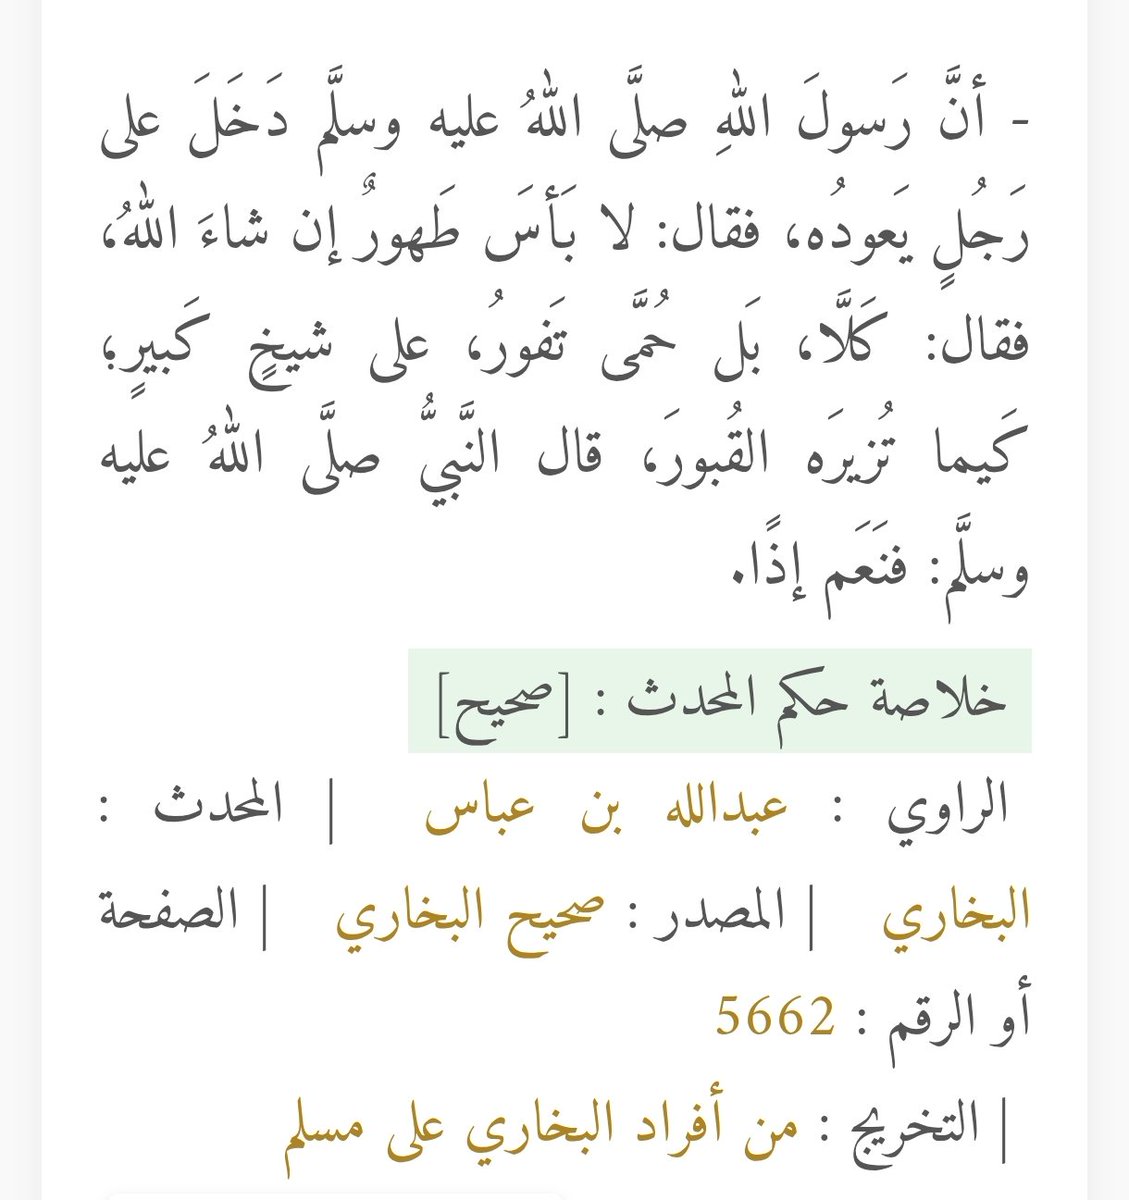 - أنَّ رَسولَ اللهِ صلَّى اللهُ عليه وسلَّم دَخَلَ على
رَجُلٍ يَعودُه، فقال: لا بَأسَ طَهورٌ إن شاءَ اللهُ،
فقال: كَلَّا، بَل حُمَّى تَفورُ، على شيخٍ كَبيرٍ؛
كَيما تُزيرَه القُبورَ، قال النَّبيُّ صلَّى اللهُ عليه
وسلَّم: فنَعَم إذًا.
خلاصة حكم المحدث : [صحيح]
الراوي : عبدالله بن عباس | المحدث :
البخاري | المصدر : صحيح البخاري | الصفحة
أو الرقم : 5662
| التخريج : من أفراد البخاري على مسلم